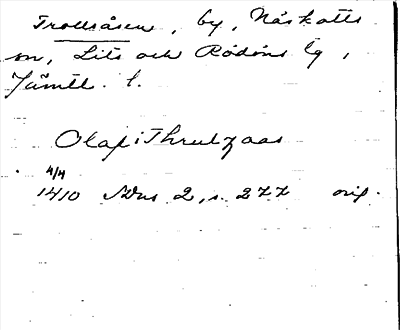 Trollsåsen, by, Näskotts
sn, Lits och Rödöns tg,
Jämtl. l.
Olaf i Thrulzaas
4/4
1410 SDns 2, s. 277 orig.